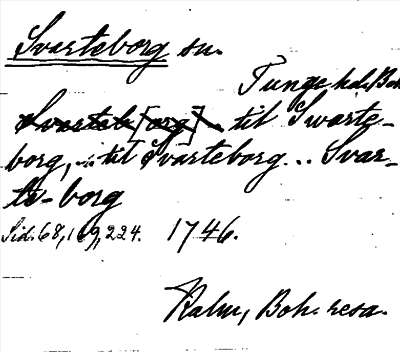 Svarteborg sn.
Tunge hd. Boh
Svarteb[org] til Swarte-
borg, ... til Svarteborg... Svar-
te-borg
Sid. 68, 169, 224. 1746.
Kalm, Boh. resa.